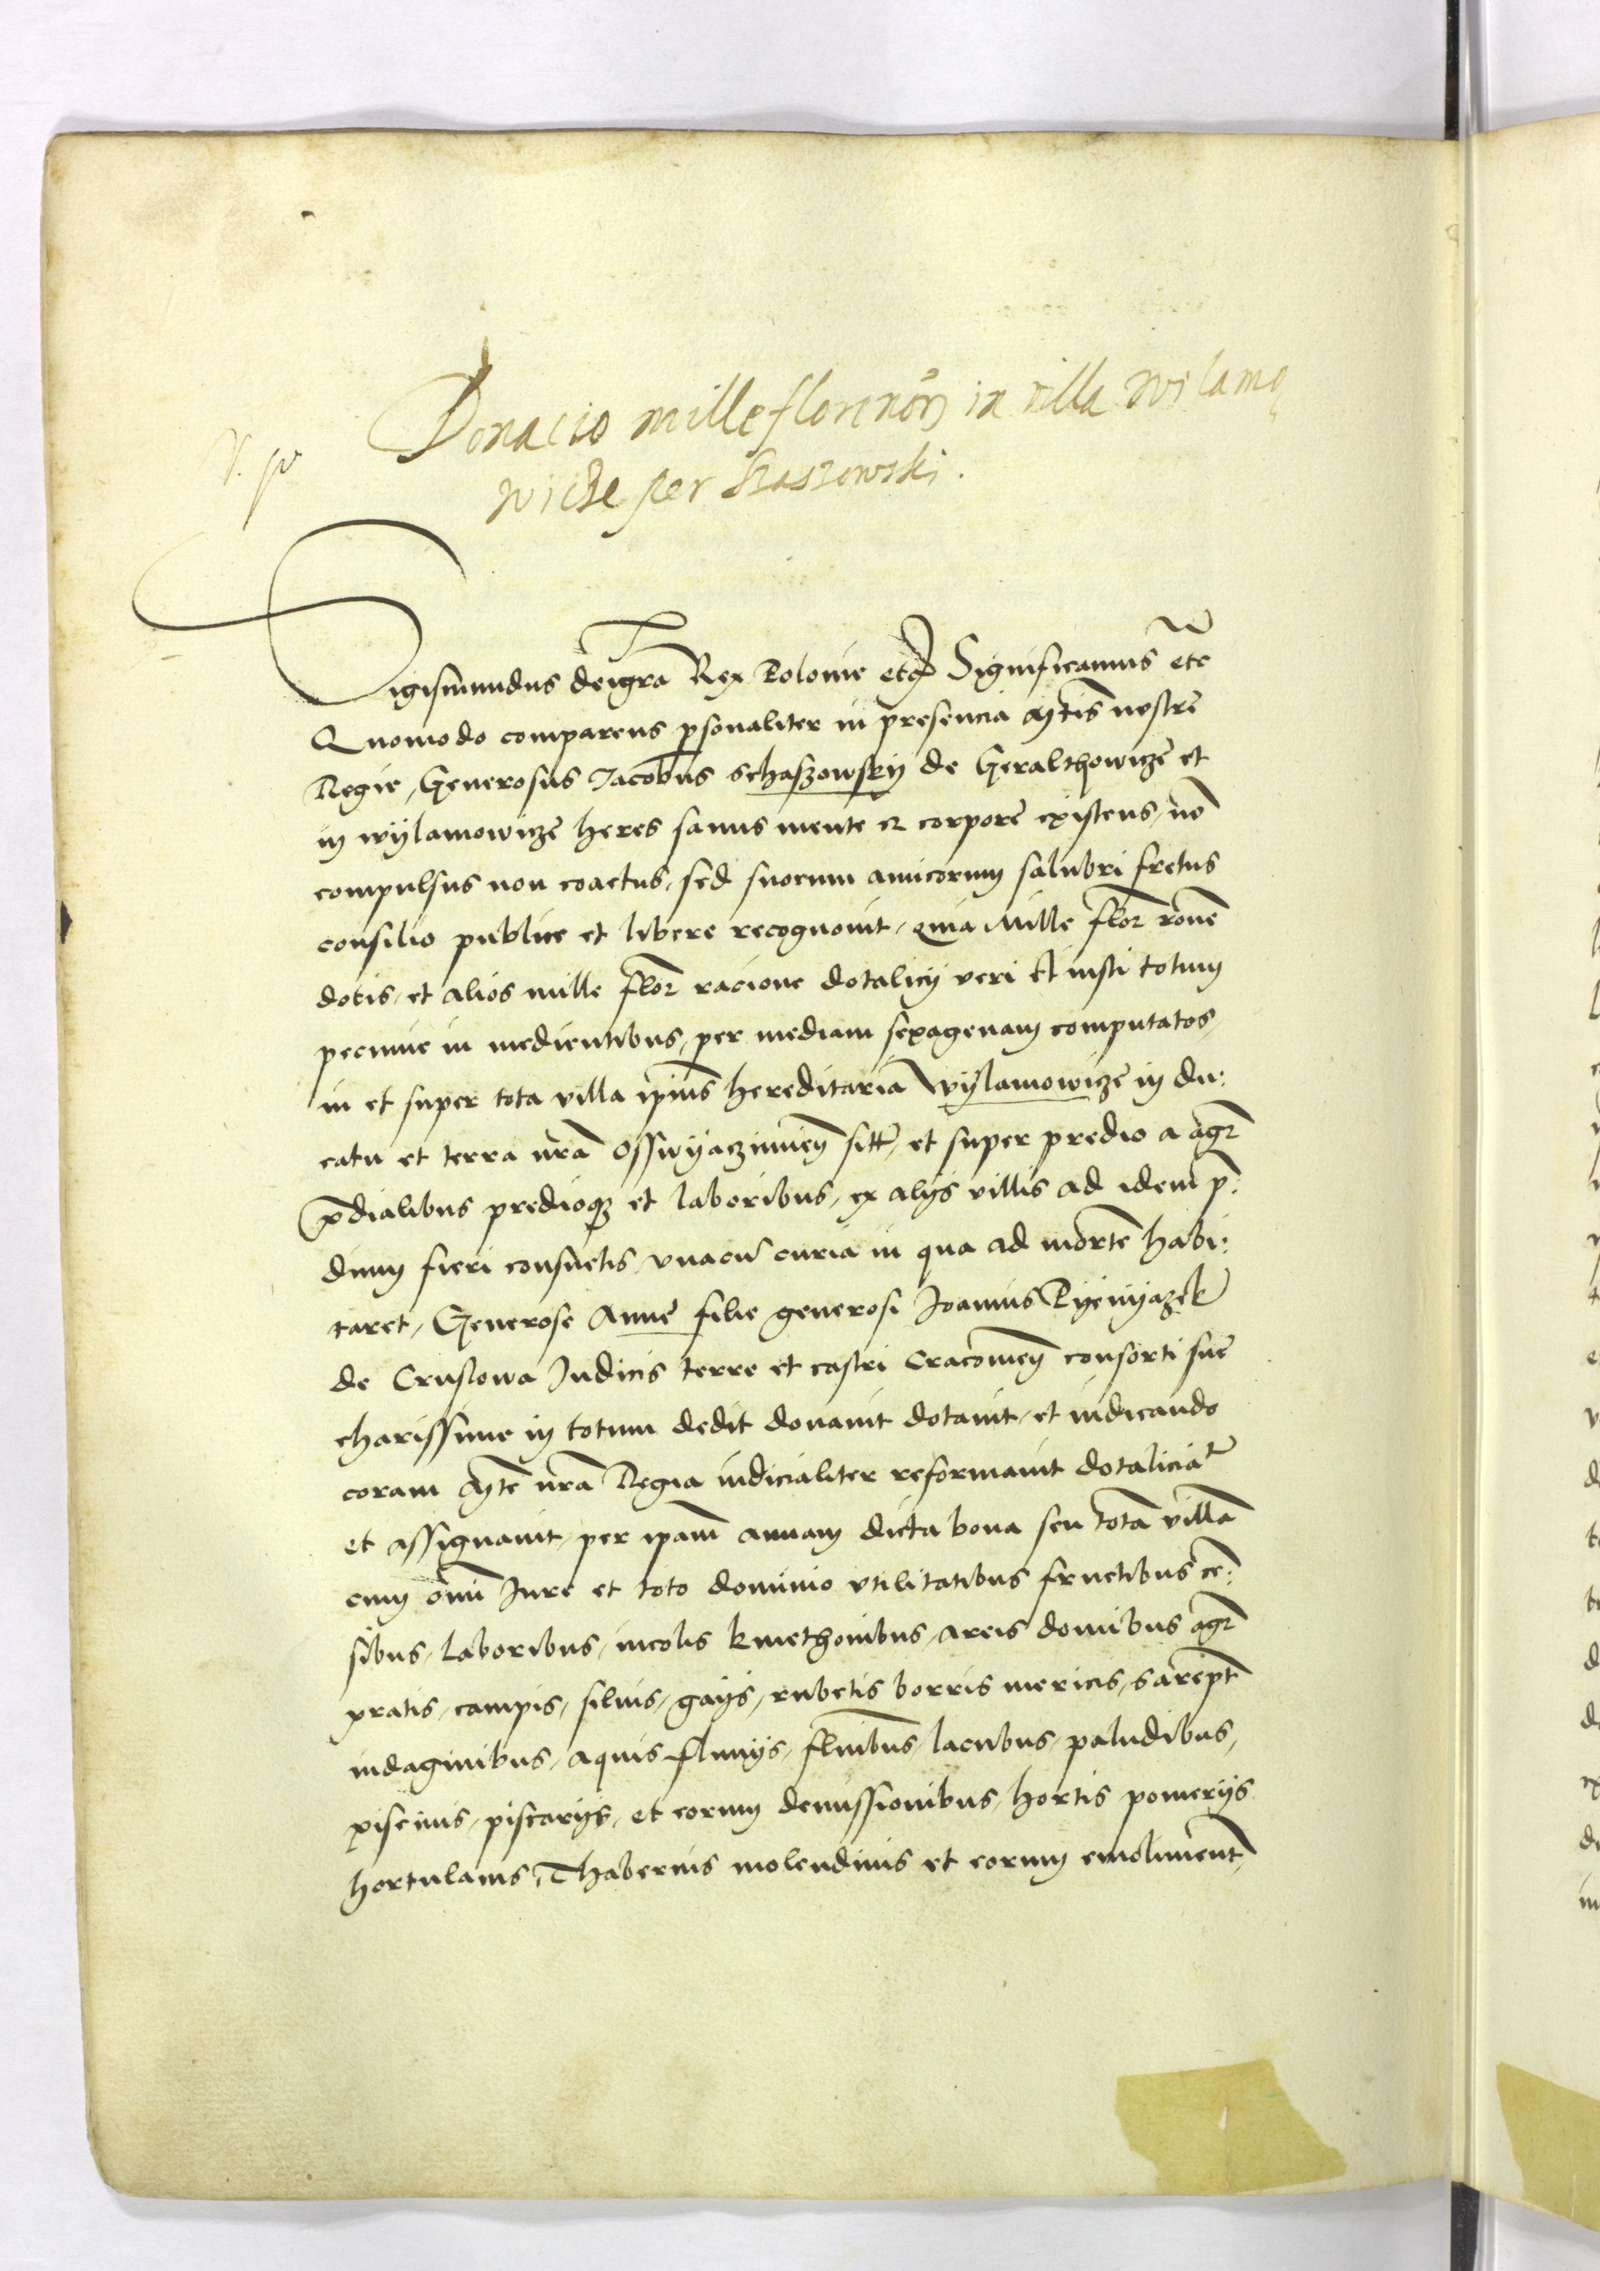 Donacio mille florenor̃ in villa Wilamo
wicze per Szaszowski.
Sigismundus deigra Rex Polonie etc Significamus etc
Quomodo comparens psonaliter in presencia Mtis nostre
Regie, Generosus Jacobus Schaszowsky de Geralthowicze et
in Wylamowicze heres sanus mente et corpore existens, nõ
compulsus non coactus, sed suorum amicorum salubri fretus
consilio publice et libere recognovit, quia Mille flor rõne
dotis, et alios mille flor racione dotalicij veri et iusti totum
pecunie in medientibus, per mediam sexagenam computatos,
in et super tota villa ipius hereditaria Wylamowicze in du:
catu et terra nra Osswyaczimen sitt, et super predio a agr
pdialibus predioq3 et laboribus, ex alijs villis ad idem p:
dium fieri consuetis, vnacũ curia in qua ad mortẽ habi:
taret, Generose Anne filie generosi Joannis Pyenyazek
de Cruslowa Judicis terre et castri Cracovien consorti sue
charissime in totum dedit donavit dotavit, et indicando
coram Mte nra Regia iudicialiter reformavit dotaliciat
et assignavit, per ipam annam dicta bona seu totã villã
cum omi Jure et toto dominio vtilitatibus fructibus cẽ:
sibus, laboribus, incolis kmethonibus, areis domibus agr
pratis, campis, siluis, gays, rubetis borris mericis, sarept
indaginibus, aquis fluuijs, fluibus, lacubus, paludibus,
piscinis, piscarijs, et eorum demissionibus, hortis pomerijs
hortulanis, Thabernis molendinis et eorum emoliment,